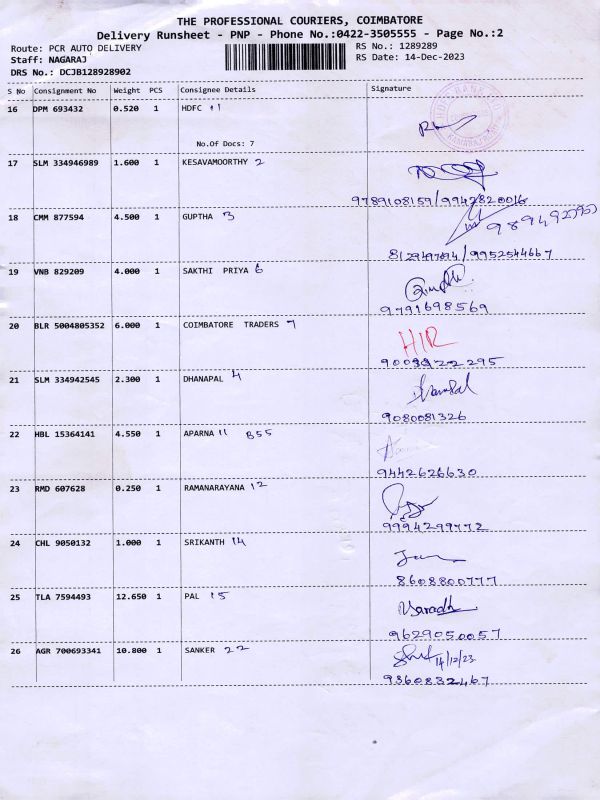 THE PROFESSIONAL COURIERS, COIMBATORE
Delivery Runsheet - PNP - Phone No.:0422-3505555 - Page No.:2
Route: PCR AUTO DELIVERY RS No.: 1289289
Staff: NAGARAJ RS Date: 14-Dec-2023
DRS No.: DCJB128928902
S No Consignment No Weight PCS Consignee Details Signature
16 DPM 693432 0.520 1 HDFC 11
No.Of Docs: 7
17 SLM 334946989 1.600 1 KESAVAMOORTHY 2
9789108159/9942820016
18 CMM 877594 4.500 1 GUPTHA 3
9952544667
19 VNB 829209 4.000 1 SAKTHI PRIYA 6
9791698569
20 BLR 5004805352 6.000 1 COIMBATORE TRADERS 7
HIR
21 SLM 334942545 2.300 1 DHANAPAL 4
Dhanapal
9080081326
22 HBL 15364141 4.550 1 APARNA 11 B55
9442626630
23 RMD 607628 0.250 1 RAMANARAYANA 12
9994299772
24 CHL 9050132 1.000 1 SRIKANTH 14
8608800777
25 TLA 7594493 12.650 1 PAL 15
Varadh
9629050057
26 AGR 700693341 10.800 1 SANKER 22
14/12/23
9360832467